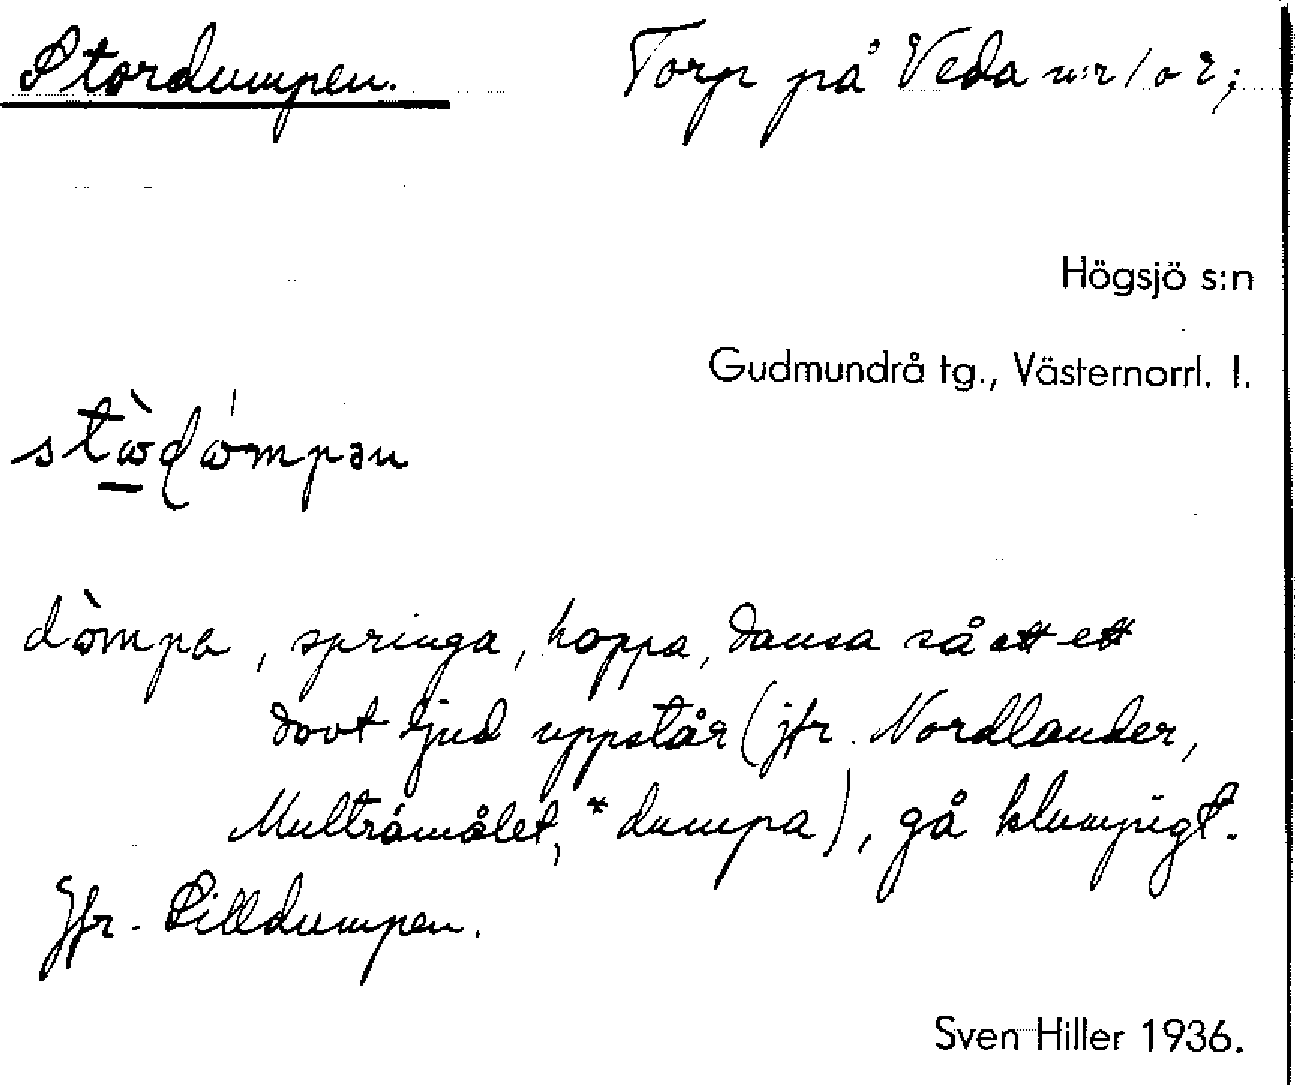 Stordumpen. Torp på Veda n:r 1 o 2;
Högsjö s:n
Gudmundrå tg., Västernorrl. l.
stɷ̀ḍɷmpən
dɷ̀mpa, springa, hoppa, dansa så att ett
dovt ljud uppstår (jfr. Nordlander,
Multråmålet, *dumpa), gå klumpigt.
Jfr. Lilldumpen.
Sven Hiller 1936.